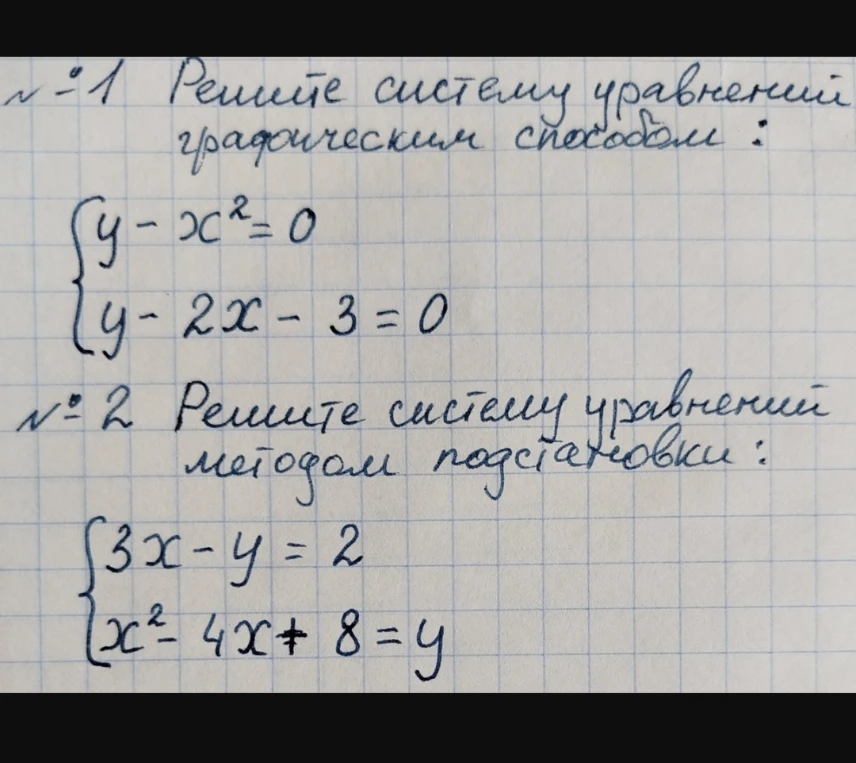 №1 Решите систему уравнений
графическим способом:
y - x² = 0
y - 2x - 3 = 0
№2 Решите систему уравнений
методом подстановки:
3x - y = 2
x² - 4x + 8 = y